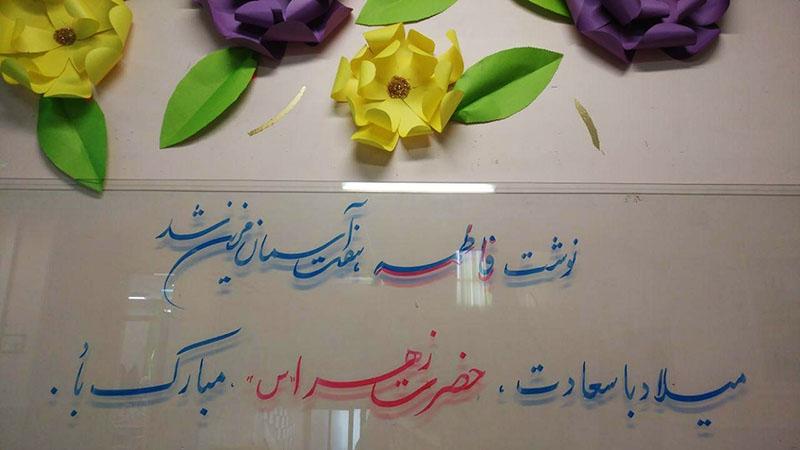 نوشت فاطمه هفت آسمان مزین شد
میلاد با سعادت ، حضرت زهرا "س" ، مبارک باد .